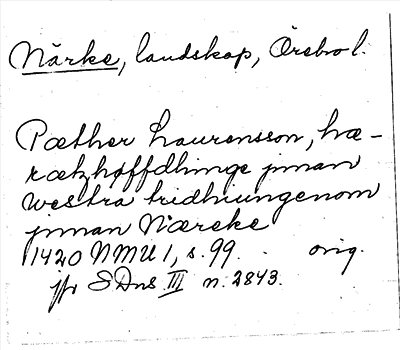 Närke, landskap, Örebro l.
Pæther Laurensson, hæ-
rætzhøffdhinge jnnan
westra tridhiungenom
jnnan Næreke
1420 NMU 1, s. 99. orig.
jfr SDns III n. 2843.